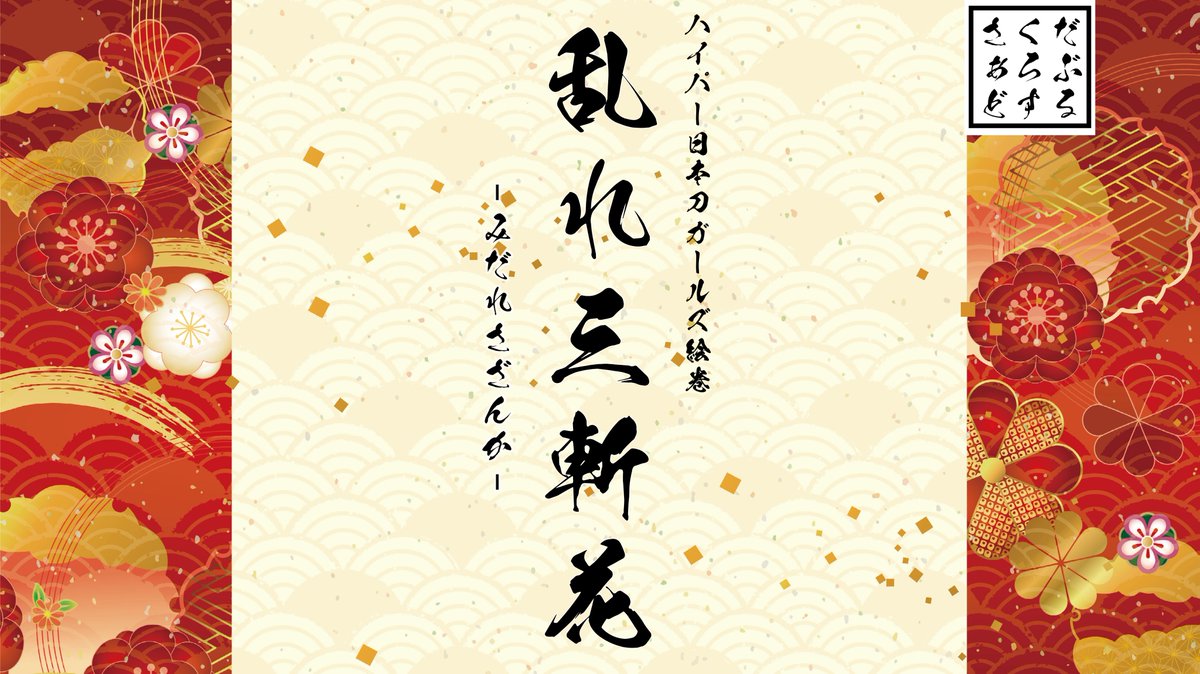 だぶる
くろす
さあど
ハイパー日本刀ガールズ絵巻
乱れ三斬花
-みだれさざんか-